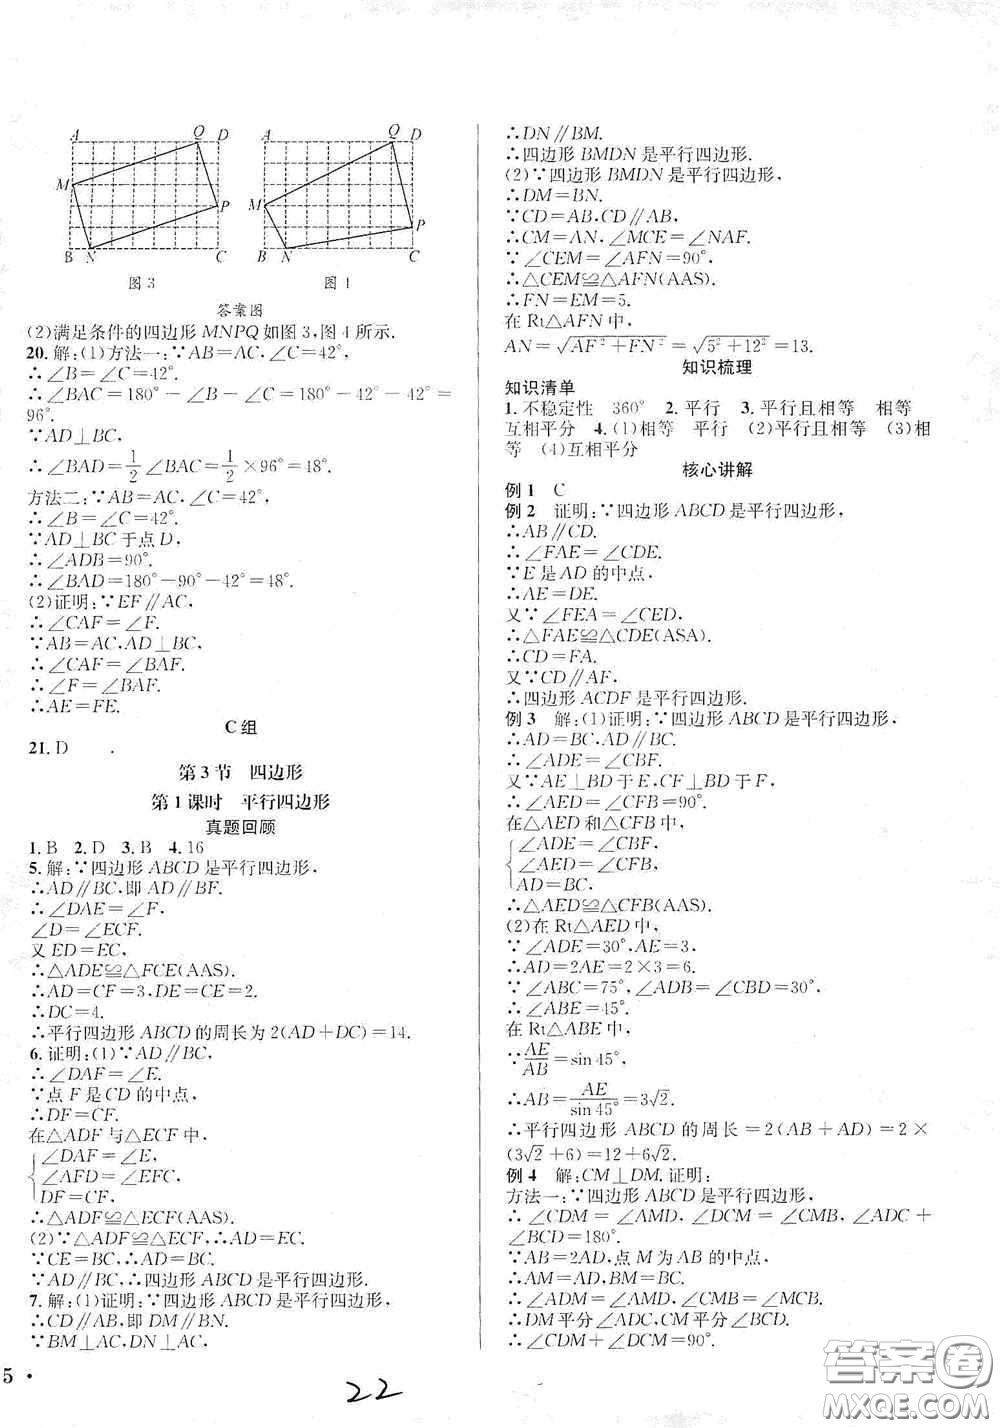 A Q D A Q D
M P M P
B N C B N C
图3 图1
答案图
(2)满足条件的四边形MNPQ如图3,图4所示.
20.解:(1)方法一:∵AB=AC,∠C=42°,
∴∠B=∠C=42°.
∴∠BAC=180°-∠B-∠C=180°-42°-42°=
96°.
∵AD⊥BC,
∴∠BAD=1/2∠BAC=1/2×96°=48°.
方法二:∵AB=AC,∠C=42°,
∴∠B=∠C=42°.
∵AD⊥BC于点D,
∴∠ADB=90°.
∴∠BAD=180°-90°-42°=48°.
(2)证明:∵EF∥AC,
∴∠CAF=∠F.
∵AB=AC,AD⊥BC,
∴∠CAF=∠BAF.
∴∠F=∠BAF.
∴AE=FE.
C组
21.D
第3节 四边形
第1课时 平行四边形
真题回顾
1.B 2.D 3.B 4.16
5.解:∵四边形ABCD是平行四边形,
∴AD∥BC,即AD∥BF.
∴∠DAE=∠F,
∠D=∠ECF.
又ED=EC,
∴△ADE≌△FCE(AAS).
∴AD=CF=3,DE=CE=2.
∴DC=4.
∴平行四边形ABCD的周长为2(AD+DC)=14.
6.证明:(1)∵AD∥BC,
∴∠DAF=∠E.
∵点F是CD的中点,
∴DF=CF.
在△ADF与△ECF中,
∠DAF=∠E,
∠AFD=∠EFC,
DF=CF,
∴△ADF≌△ECF(AAS).
(2)∵△ADF≌△ECF,∴AD=EC.
∵CE=BC,∴AD=BC.
∵AD∥BC,∴四边形ABCD是平行四边形.
7.解:(1)证明:∵四边形ABCD是平行四边形,
∴CD∥AB,即DM∥BN.
∵BM⊥AC,DN⊥AC,
∴DN∥BM.
∴四边形BMDN是平行四边形.
(2)∵四边形BMDN是平行四边形,
∴DM=BN.
∵CD=AB,CD∥AB,
∴CM=AN,∠MCE=∠NAF.
∵∠CEM=∠AFN=90°,
∴△CEM≌△AFN(AAS).
∴FN=EM=5.
在Rt△AFN中,
AN=√(AF²+FN²)=√(5²+12²)=13.
知识梳理
知识清单
1.不稳定性 360° 2.平行 3.平行且相等 相等
互相平分 4.(1)相等 平行 (2)平行且相等 (3)相
等 (4)互相平分
核心讲解
例1 C
例2 证明:∵四边形ABCD是平行四边形,
∴AB∥CD.
∴∠FAE=∠CDE.
∵E是AD的中点,
∴AE=DE.
又∵∠FEA=∠CED,
∴△FAE≌△CDE(ASA).
∴CD=FA.
又∵CD∥AF,
∴四边形ACDF是平行四边形.
例3 解:(1)证明:∵四边形ABCD是平行四边形,
∴AD=BC,AD∥BC.
∴∠ADE=∠CBF.
又∵AE⊥BD于E,CF⊥BD于F,
∴∠AED=∠CFB=90°.
在△AED和△CFB中,
∠ADE=∠CBF,
∠AED=∠CFB,
AD=BC,
∴△AED≌△CFB(AAS).
(2)在Rt△AED中,
∵∠ADE=30°,AE=3,
∴AD=2AE=2×3=6.
∵∠ABC=75°,∠ADB=∠CBD=30°,
∴∠ABE=45°.
在Rt△ABE中,
∵AE/AB=sin 45°,
∴AB=AE/sin 45°=3√2.
∴平行四边形ABCD的周长=2(AB+AD)=2×
(3√2+6)=12+6√2.
例4 解:CM⊥DM.证明:
方法一:∵四边形ABCD是平行四边形,
∴∠CDM=∠AMD,∠DCM=∠CMB,∠ADC+
∠BCD=180°.
∵AB=2AD,点M为AB的中点,
∴AM=AD,BM=BC.
∴∠ADM=∠AMD,∠CMB=∠MCB.
∴DM平分∠ADC,CM平分∠BCD.
∴∠CDM+∠DCM=90°.
5 ·
22
答案圈
MXQE.COM